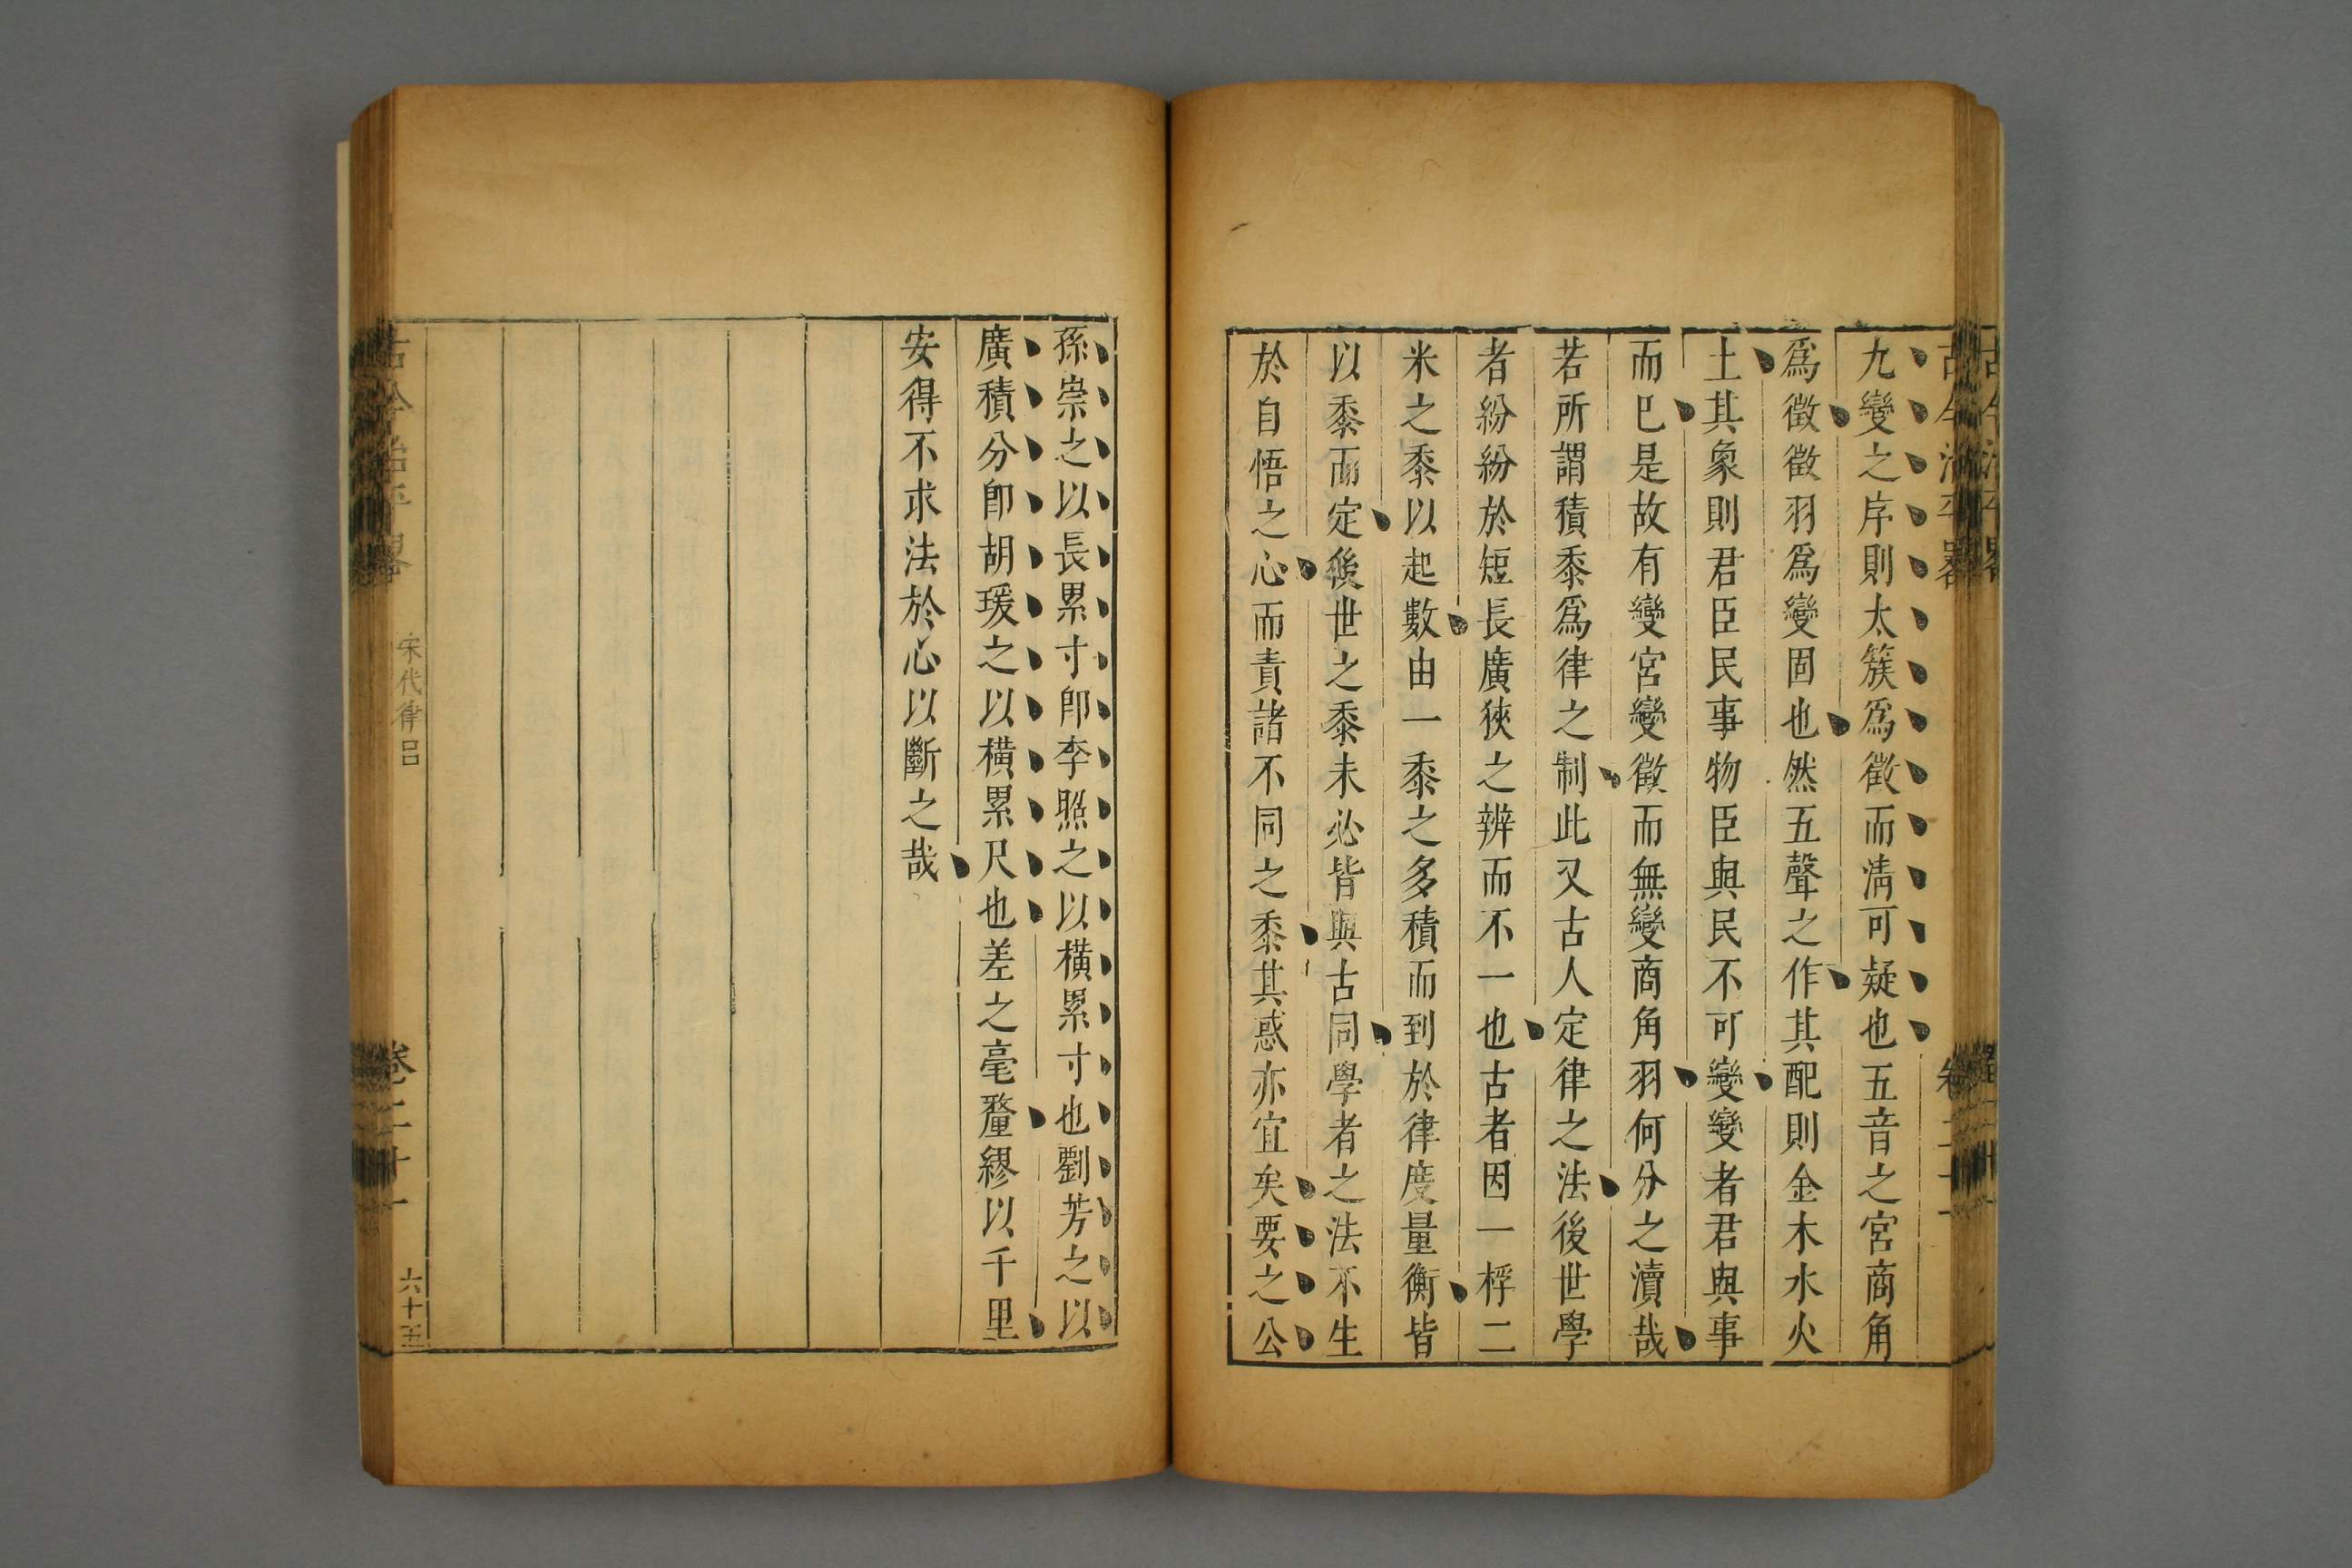 九變之序則太簇爲徵而淸可疑也五音之宮商角
爲徵徵羽爲變固也然五聲之作其配則金木水火
土其象則君臣民事物臣與民不可變變者君與事
而已是故有變宮變徵而無變商角羽何分之瀆哉
若所謂積黍爲律之制此又古人定律之法後世學
者紛紛於短長廣狹之辨而不一也古者因一桴二
米之黍以起數由一黍之多積而到於律度量衡皆
以黍而定後世之黍未必皆與古同學者之法不生
於自悟之心而責諸不同之黍其惑亦宜矣要之公
孫崇之以長累寸卽李照之以橫累寸也劉芳之以
廣積分卽胡瑗之以橫累尺也差之毫釐繆以千里
安得不求法於心以斷之哉
古今治平畧
宋代律呂
卷二十一
六十五